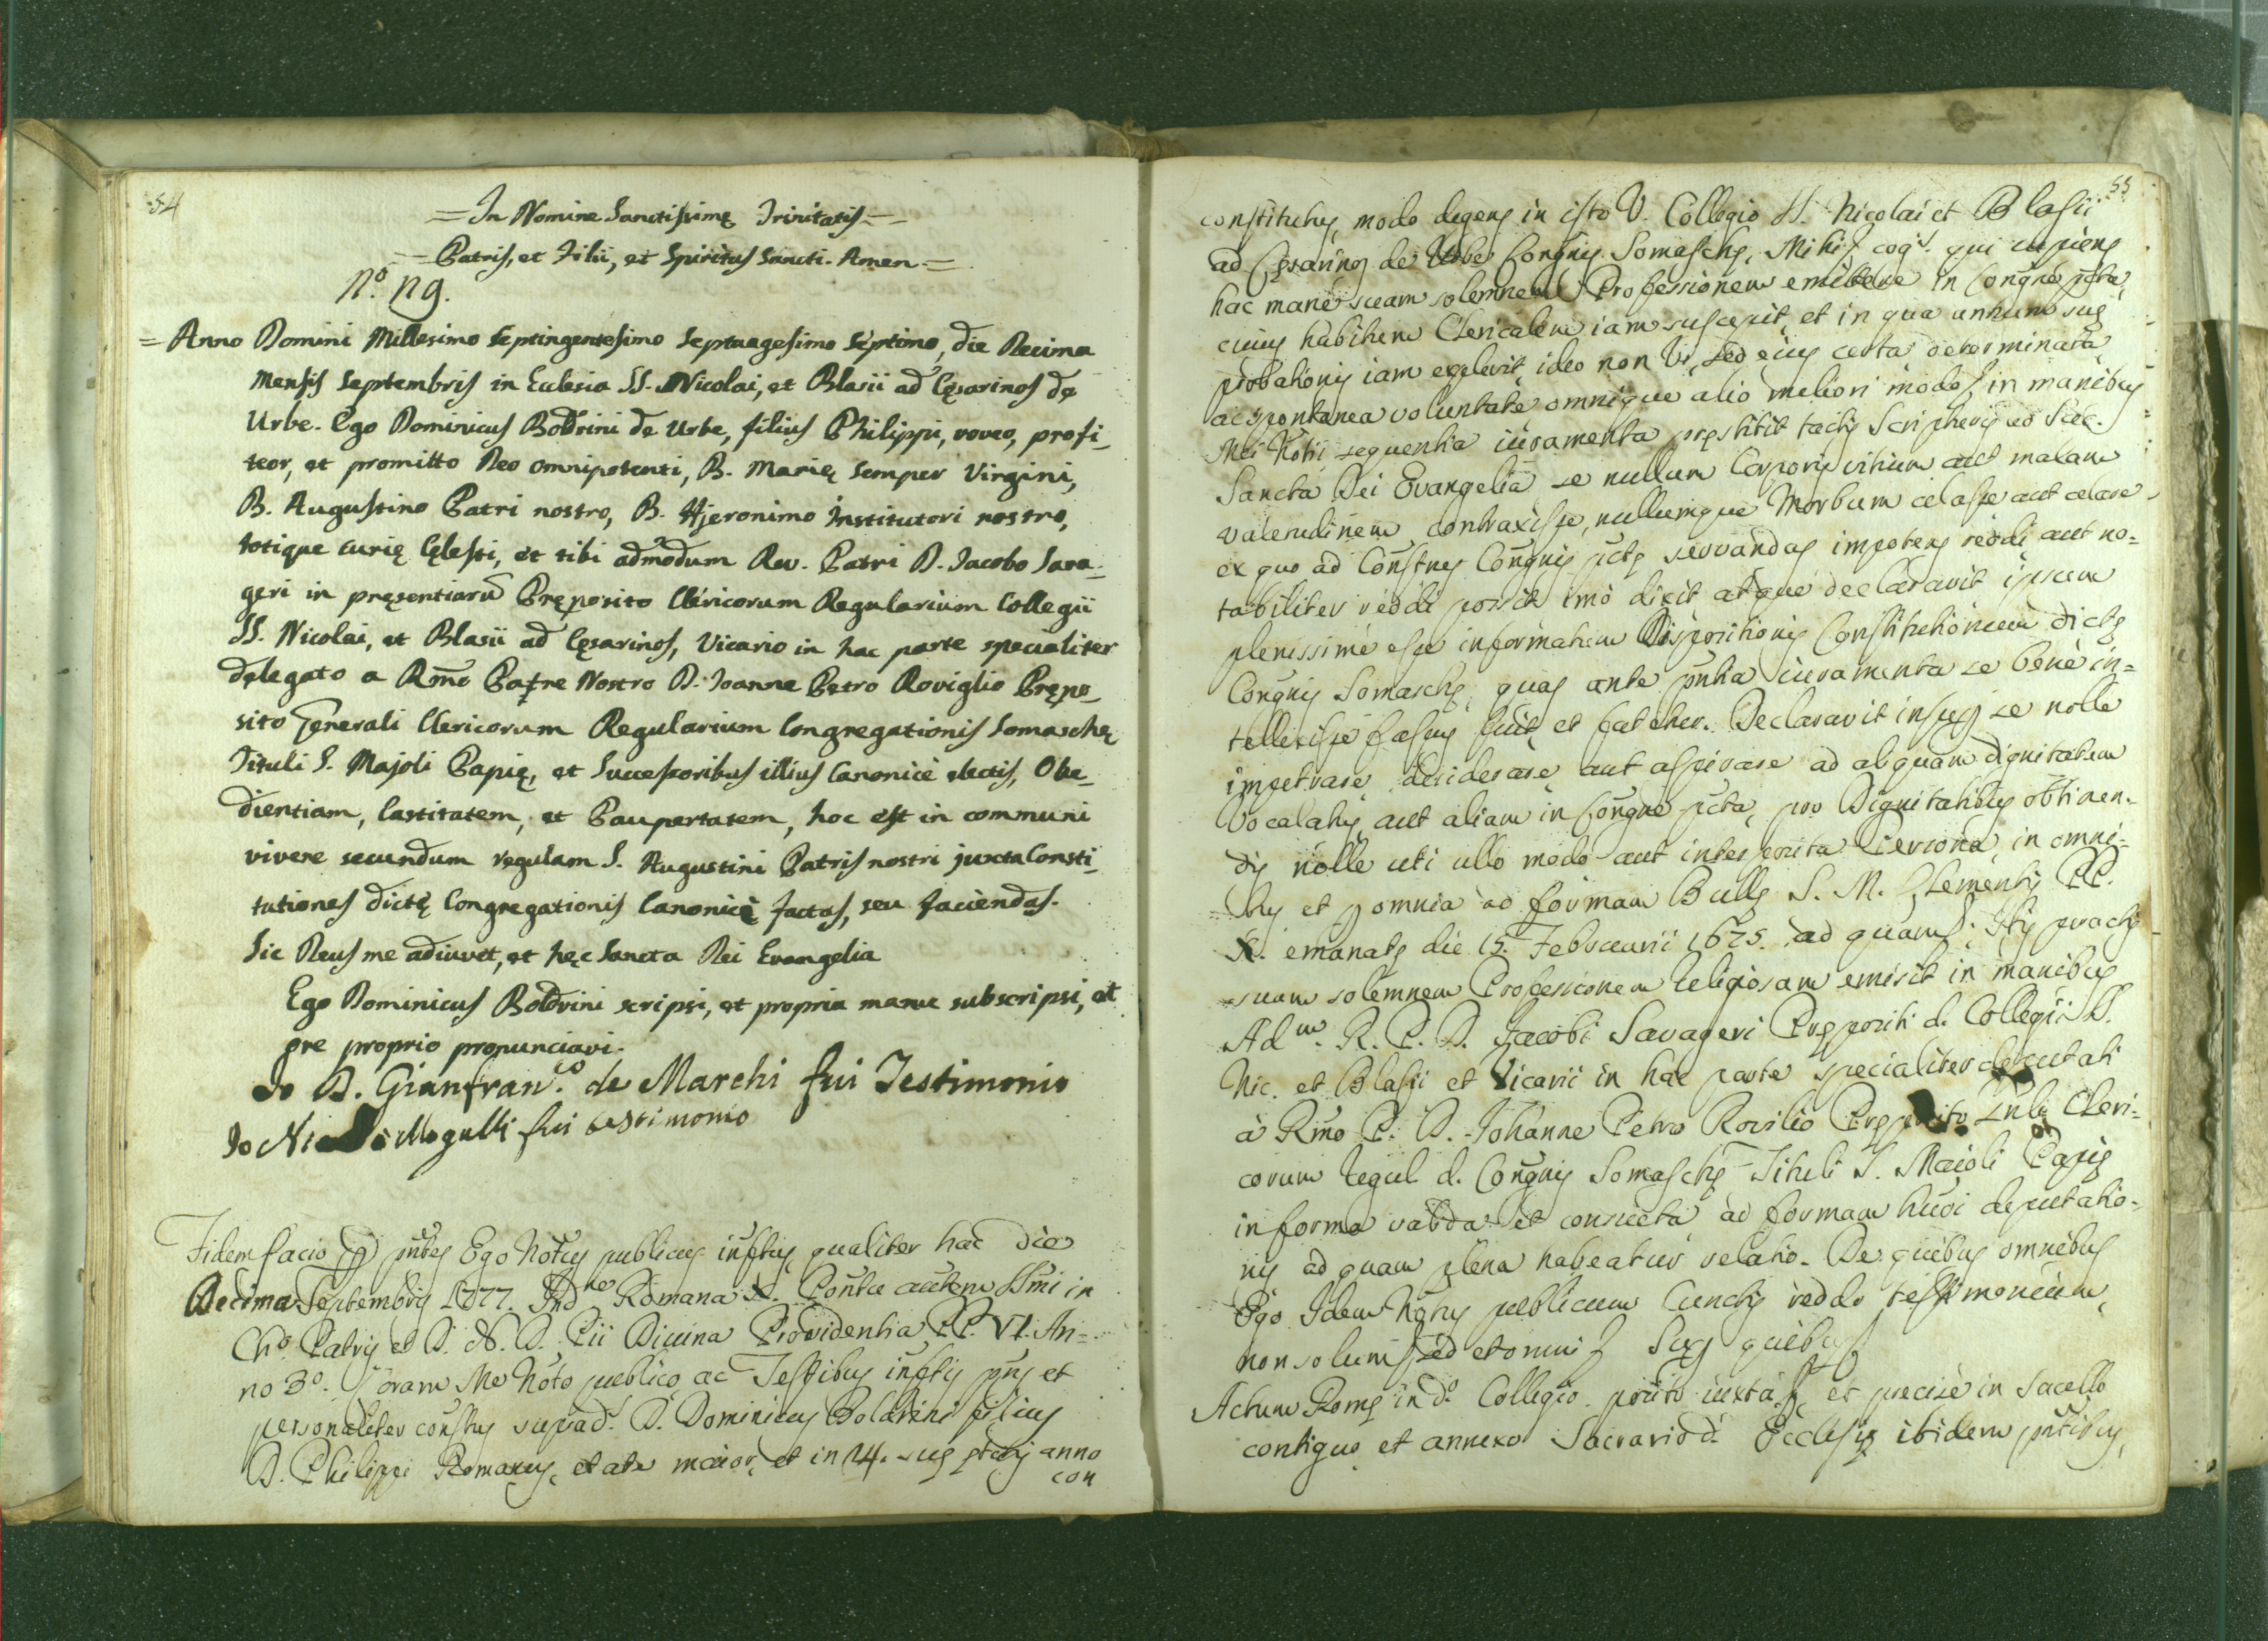 54
= In Nomine Sanctissimę Trinitatis =
= Patris, et Filii, et Spiritus Sancti. Amen =
N.º 119.
= Anno Domini Millesimo Septingentesimo Septuagesimo Septimo, die Decima
Mensis Septembris in Eclesia SS. Nicolai, et Blasii ad Cęsarinos de
Urbe. Ego Dominicus Boldrini de Urbe, filius Philippi, voveo, profi-
teor, et promitto Deo omnipotenti, B. Marię semper Virgini,
B. Augustino Patri nostro, B. Hjeronimo Institutori nostro,
totique curię Cęlesti, et tibi admodum Rev. Patri D. Jacobo Sava-
geri in pręsentiarũ Pręposito Clericorum Regularium Collegii
SS. Nicolai, et Blasii ad Cęsarinos, Vicario in hac parte specialiter
delegato a Rm̃o Patre Nostro D. Joanne Petro Roviglio Prępo-
sito Generali Clericorum Regularium Congregationis Somaschę
Tituli S. Majoli Papię, et Successoribus illius Canonicè electis, Obe-
dientiam, Castitatem, et Paupertatem, hoc est in communi
vivere secundum regulam S. Augustini Patris nostri juxta Consti-
tutiones dictę Congregationis Canonicè factas, seu faciendas.
Sic Deus me adiuvet, et hęc Sancta Dei Evangelia
Ego Dominicus Boldrini scripsi, et propria manu subscripsi, et
ore proprio pronunciavi.
Io D. Gianfran.co de Marchi fui Testimonio
Io Mogulli fui testimonio
Fidem facio p p̃ntes Ego Notus publicus inftus qualiter hac die
Decima Septembris 1777. Ind.ne Romana X. Pontu autem SSmi in
Chõ Patris et D. N. D. Pii Divina Providentia PP. VI. An-
no 3º. Coram Me Noto publico ac Testibus inftis pns et
personaliter constus suprad. D. Dominicus Boldrini filius
D. Philippi Romanus, etate maior, et in 14. suę anno
con
55
constitutus, modo degens in isto V. Collegio SS. Nicolai et Blasii
ad Cęsarinos de Urbe Congnis Somaschę, Mihi cogs. qui cupiens
hac mane suam solemnem Professionem emittere in Congne pcta,
cuius habitum Clericalem iam suscepit, et in qua annum suę
probationis iam explevit, ideo non vi, sed eius certa determinata
ac spontanea voluntate omnique alio meliori modo in manibus
Mei Notii sequentia iuramenta pręstitit tactis Scripturis ad Sac.
Sancta Dei Evangelia se nullum Corporis vitium aut malam
valetudinem contraxisse, nullumque Morbum celasse aut celare
ex quo ad Constnes Congnis pctę servandas impotens reddi aut no-
tabiliter reddi possit imò dixit atque declaravit ipsum
plenissimè esse informatum Dispositionis Constitutionum dictę
Congnis Somaschę, quas ante pntia iuramenta se benè in-
tellexisse fassus fuit, et fatetur. Declaravit insup se nolle
impetrare, desiderare, aut aspirare ad alquam dignitatem
Vocalatus, aut aliam in Congne pcta, pro Dignitatibus obtinen-
dis nolle uti ullo modo aut interposita Persona, in omni-
bus et p omnia ad formam Bullę S. M. Clementis PP.
X. emanatę die 15. Februarii 1675. ad quam. Itis peractis
suam solemnem Professionem Religiosam emisit in manibus
Ad.m R. P. D. Jacobi Savageri Prępositi d. Collegii SS.
Nic. et Blasii et Vicarii in hac parte specialiter deputati
à Rmo P. D. Johanne Petro Rovilio Pręposito Gnli Cleri-
corum Regul. d. Congnis Somaschę Tituli S. Maioli Papię
in forma valida et consueta ad formam huoi deputatio-
nis ad quam plena habeatur relatio. De quibus omnibus
Ego Idem Notus publicus Cunctis reddo testimonium,
non solum sed et omni Sup quibus
Actum Romę in dº Collegio posito iuxta et precisè in Sacello
contiguo et annexo Sacrario d. Ecclesię ibidem pntibus,